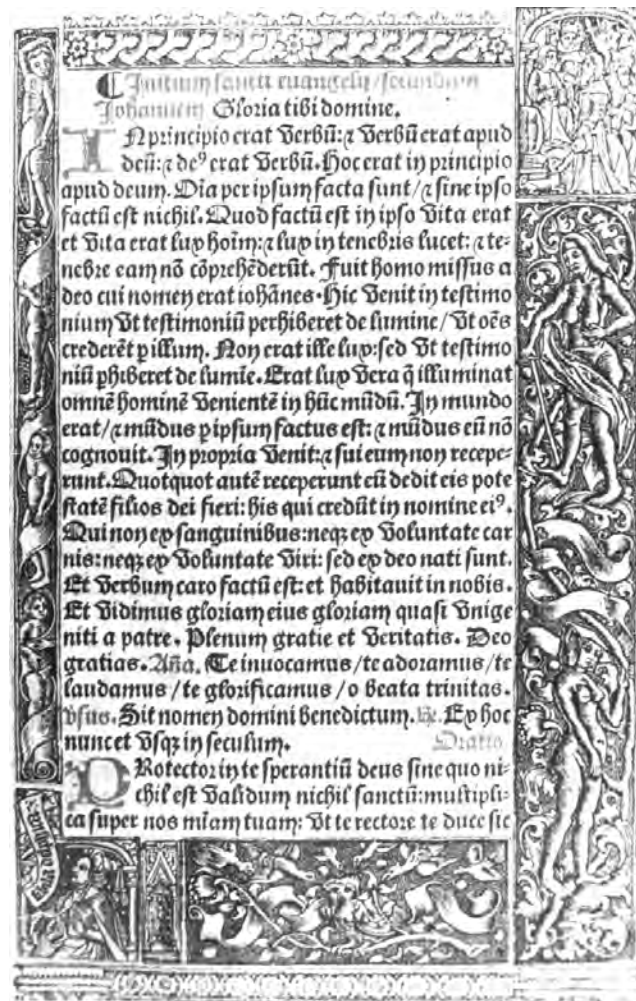 ¶ Initium sancti euangelij secundum
Johannem Gloria tibi domine.
IN principio erat verbū: ⁊ verbū erat apud
deū: ⁊ deꝰ erat verbū. Hoc erat in principio
apud deum. Oīa per ipsum facta sunt / ⁊ sine ipso
factū est nichil. Quod factū est in ipso vita erat
et vita erat lux hoīm: ⁊ lux in tenebris lucet: ⁊ te-
nebre eam nō cōprehēderūt. Fuit homo missus a
deo cui nomen erat iohānes. Hic venit in testimo
nium vt testimoniū perhiberet de lumine / vt oēs
crederēt ꝑ illum. Non erat ille lux: sed vt testimo
niū ꝑhiberet de lumīe. Erat lux vera q̄ illuminat
omnē hominē venientē in hūc mūdū. In mundo
erat / ⁊ mūdus ꝑ ipsum factus est: ⁊ mūdus eū nō
cognouit. In propria venit: ⁊ sui eum non recepe-
runt. Quotquot autē receperunt eū dedit eis pote
statē filios dei fieri: his qui credūt in nomine eiꝰ.
Qui non ex sanguinibus: neqꝫ ex voluntate car
nis: neqꝫ ex voluntate viri: sed ex deo nati sunt.
Et verbum caro factū est: et habitauit in nobis.
Et vidimus gloriam eius gloriam quasi vnige
niti a patre. Plenum gratie et veritatis. Deo
gratias. Aña. Te inuocamus / te adoramus / te
laudamus / te glorificamus / o beata trinitas.
vsus. Sit nomen domini benedictum. ℟. Ex hoc
nunc et vsqꝫ in seculum. Oratio
PRotector in te sperantiū deus sine quo ni-
chil est validum nichil sanctū: multipli-
ca super nos mīam tuam: vt te rectore te duce sic